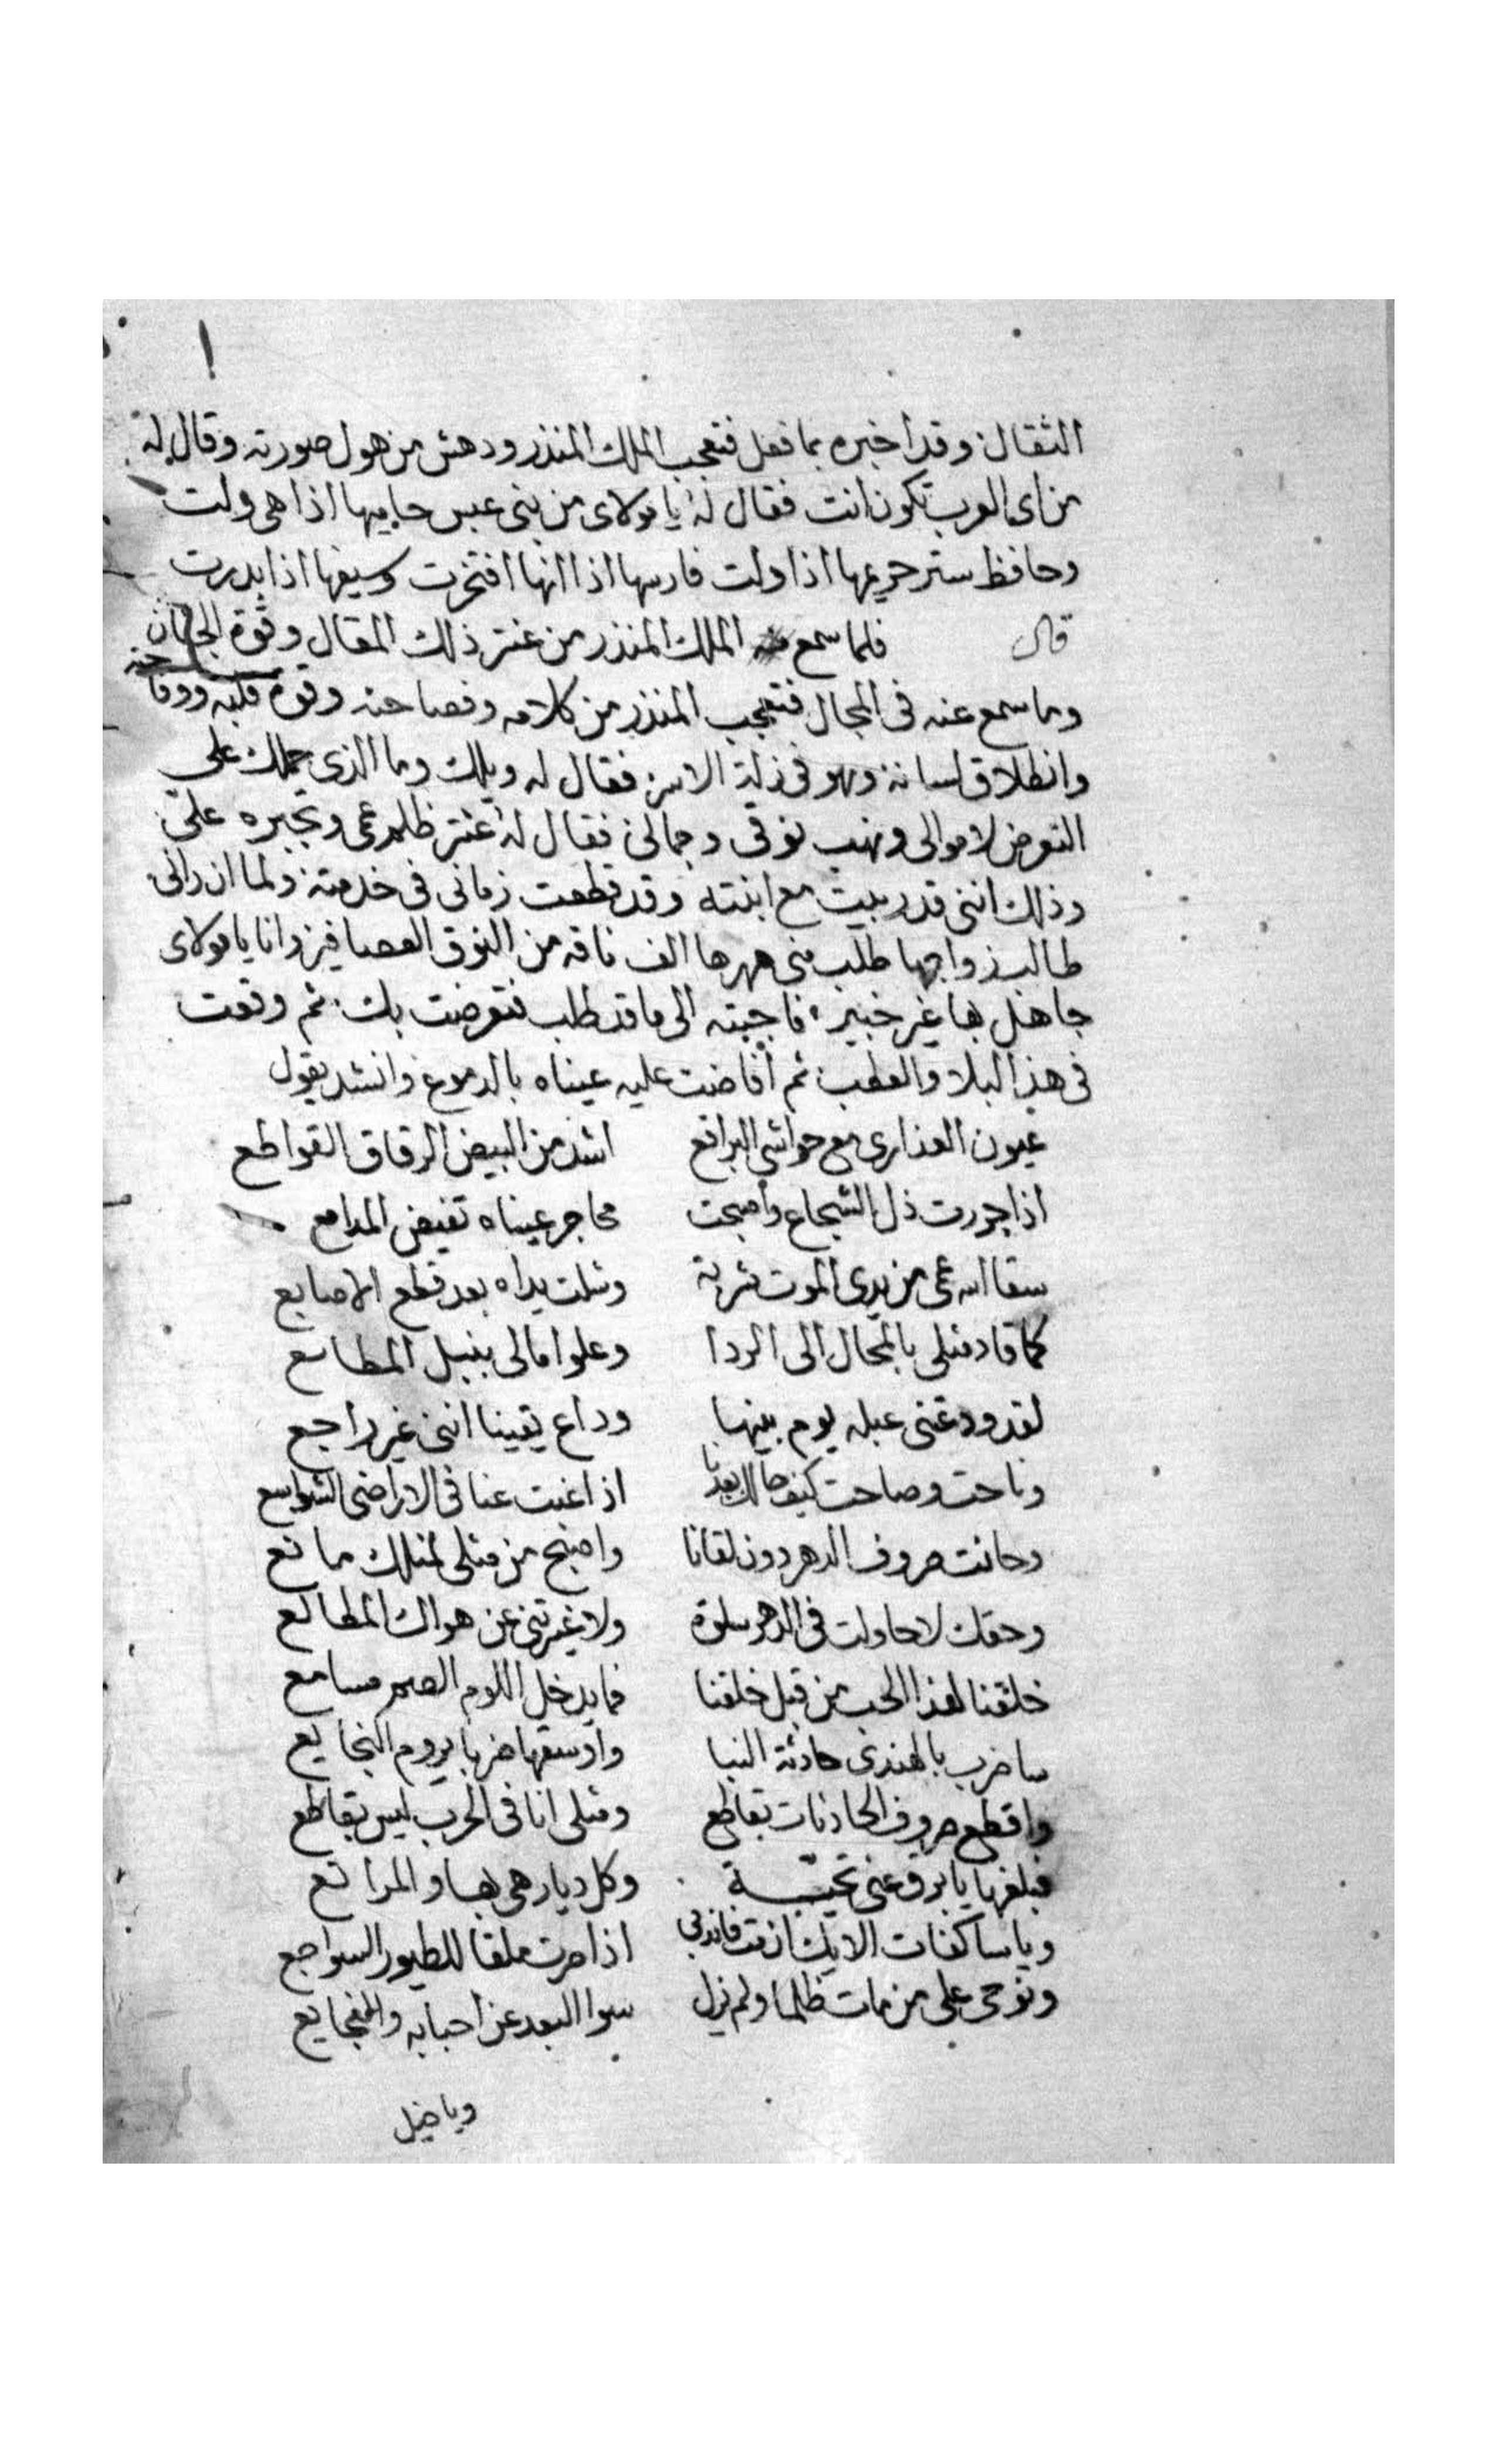 الثقال وقد اخبره بما فعل فتعجب الملك المنذر ودهش من هول صورته وقال له
من اى العرب تكون انت فقال له يا مولاى من بنى عبس حاميها اذا هى ولت
وحافظ ستر حريمها اذا ولت فارسها اذا انها افتخرت وسيفها اذا بدرت
قال فلما سمع الملك المنذر من عنتر ذلك المقال وقوة الجنان
وما سمع عنه فى المجال فتعجب المنذر من كلامه وفصاحته وقوة قلبه ووقاحته
وانطلاق لسانه وهو فى زلة الاسر فقال له ويلك وما الذى حملك على
التعرض لاموالى ونهب نوقى وجمالى فقال له عنتر ظلم عمى وتجبره على
وذلك اننى قد ربيت مع ابنته وقد قطعت زمانى فى خدمته ولما ان رانى
طالب زواجها طلب منى مهرها الف ناقه من النوق العصافير وانا يا مولاى
جاهل بها غير خبير فاجبته الى ما قد طلب فتعرضت بك ثم وقعت
فى هذا البلا والعطب ثم أفاضت عليه عيناه بالدموع وانشد يقول
عيون العذارى مع حواشى البراقع اشد من البيض الرقاق القواطع
اذا جردت ذل الشجاع واصبحت محاجر عيناه تفيض المدامع
سقا الله عمى من يدى الموت شربة وشلت يداه بعد قطع الاصابع
كما قاد مثلى بالمحال الى الردا وعلو امالى بنيل المطامع
لقد ودعتنى عبله يوم بينها وداع يقينا اننى غير راجع
وناحت وصاحت كيف حالك بعدنا اذا غبت عنا فى الاراضى الشواسع
وحانت صروف الدهر دون لقانا واصبح من مثلى لمثلك مانع
وحقك لا حاولت فى الدهر سلوة ولا غيرتنى عن هواك المطامع
خلقنا لهذا الحب من قبل خلقنا فما يدخل اللوم الصم مسامع
ساضرب بالهندى حادثة النيا واوسقها ضربا يروم الفجايع
واقطع صروف الحادثات بقاطع ومثلى انا فى الحرب ليس بقاطع
فبلغها يا برق عنى تحية وكل ديار هى بها والمراتع
ويا ساكنات الايك ان مت فاندبى اذا صرت ملقا للطيور السواجع
ونوحى على من مات ظلما ولم ينل سوا البعد عن احبابه والفجايع
ويا خيل